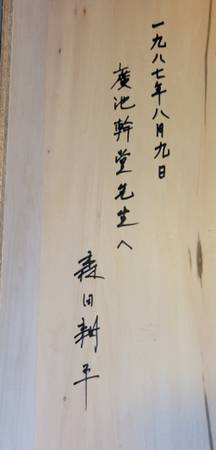 一九八七年八月九日
廣池幹堂先生へ
森田耕平